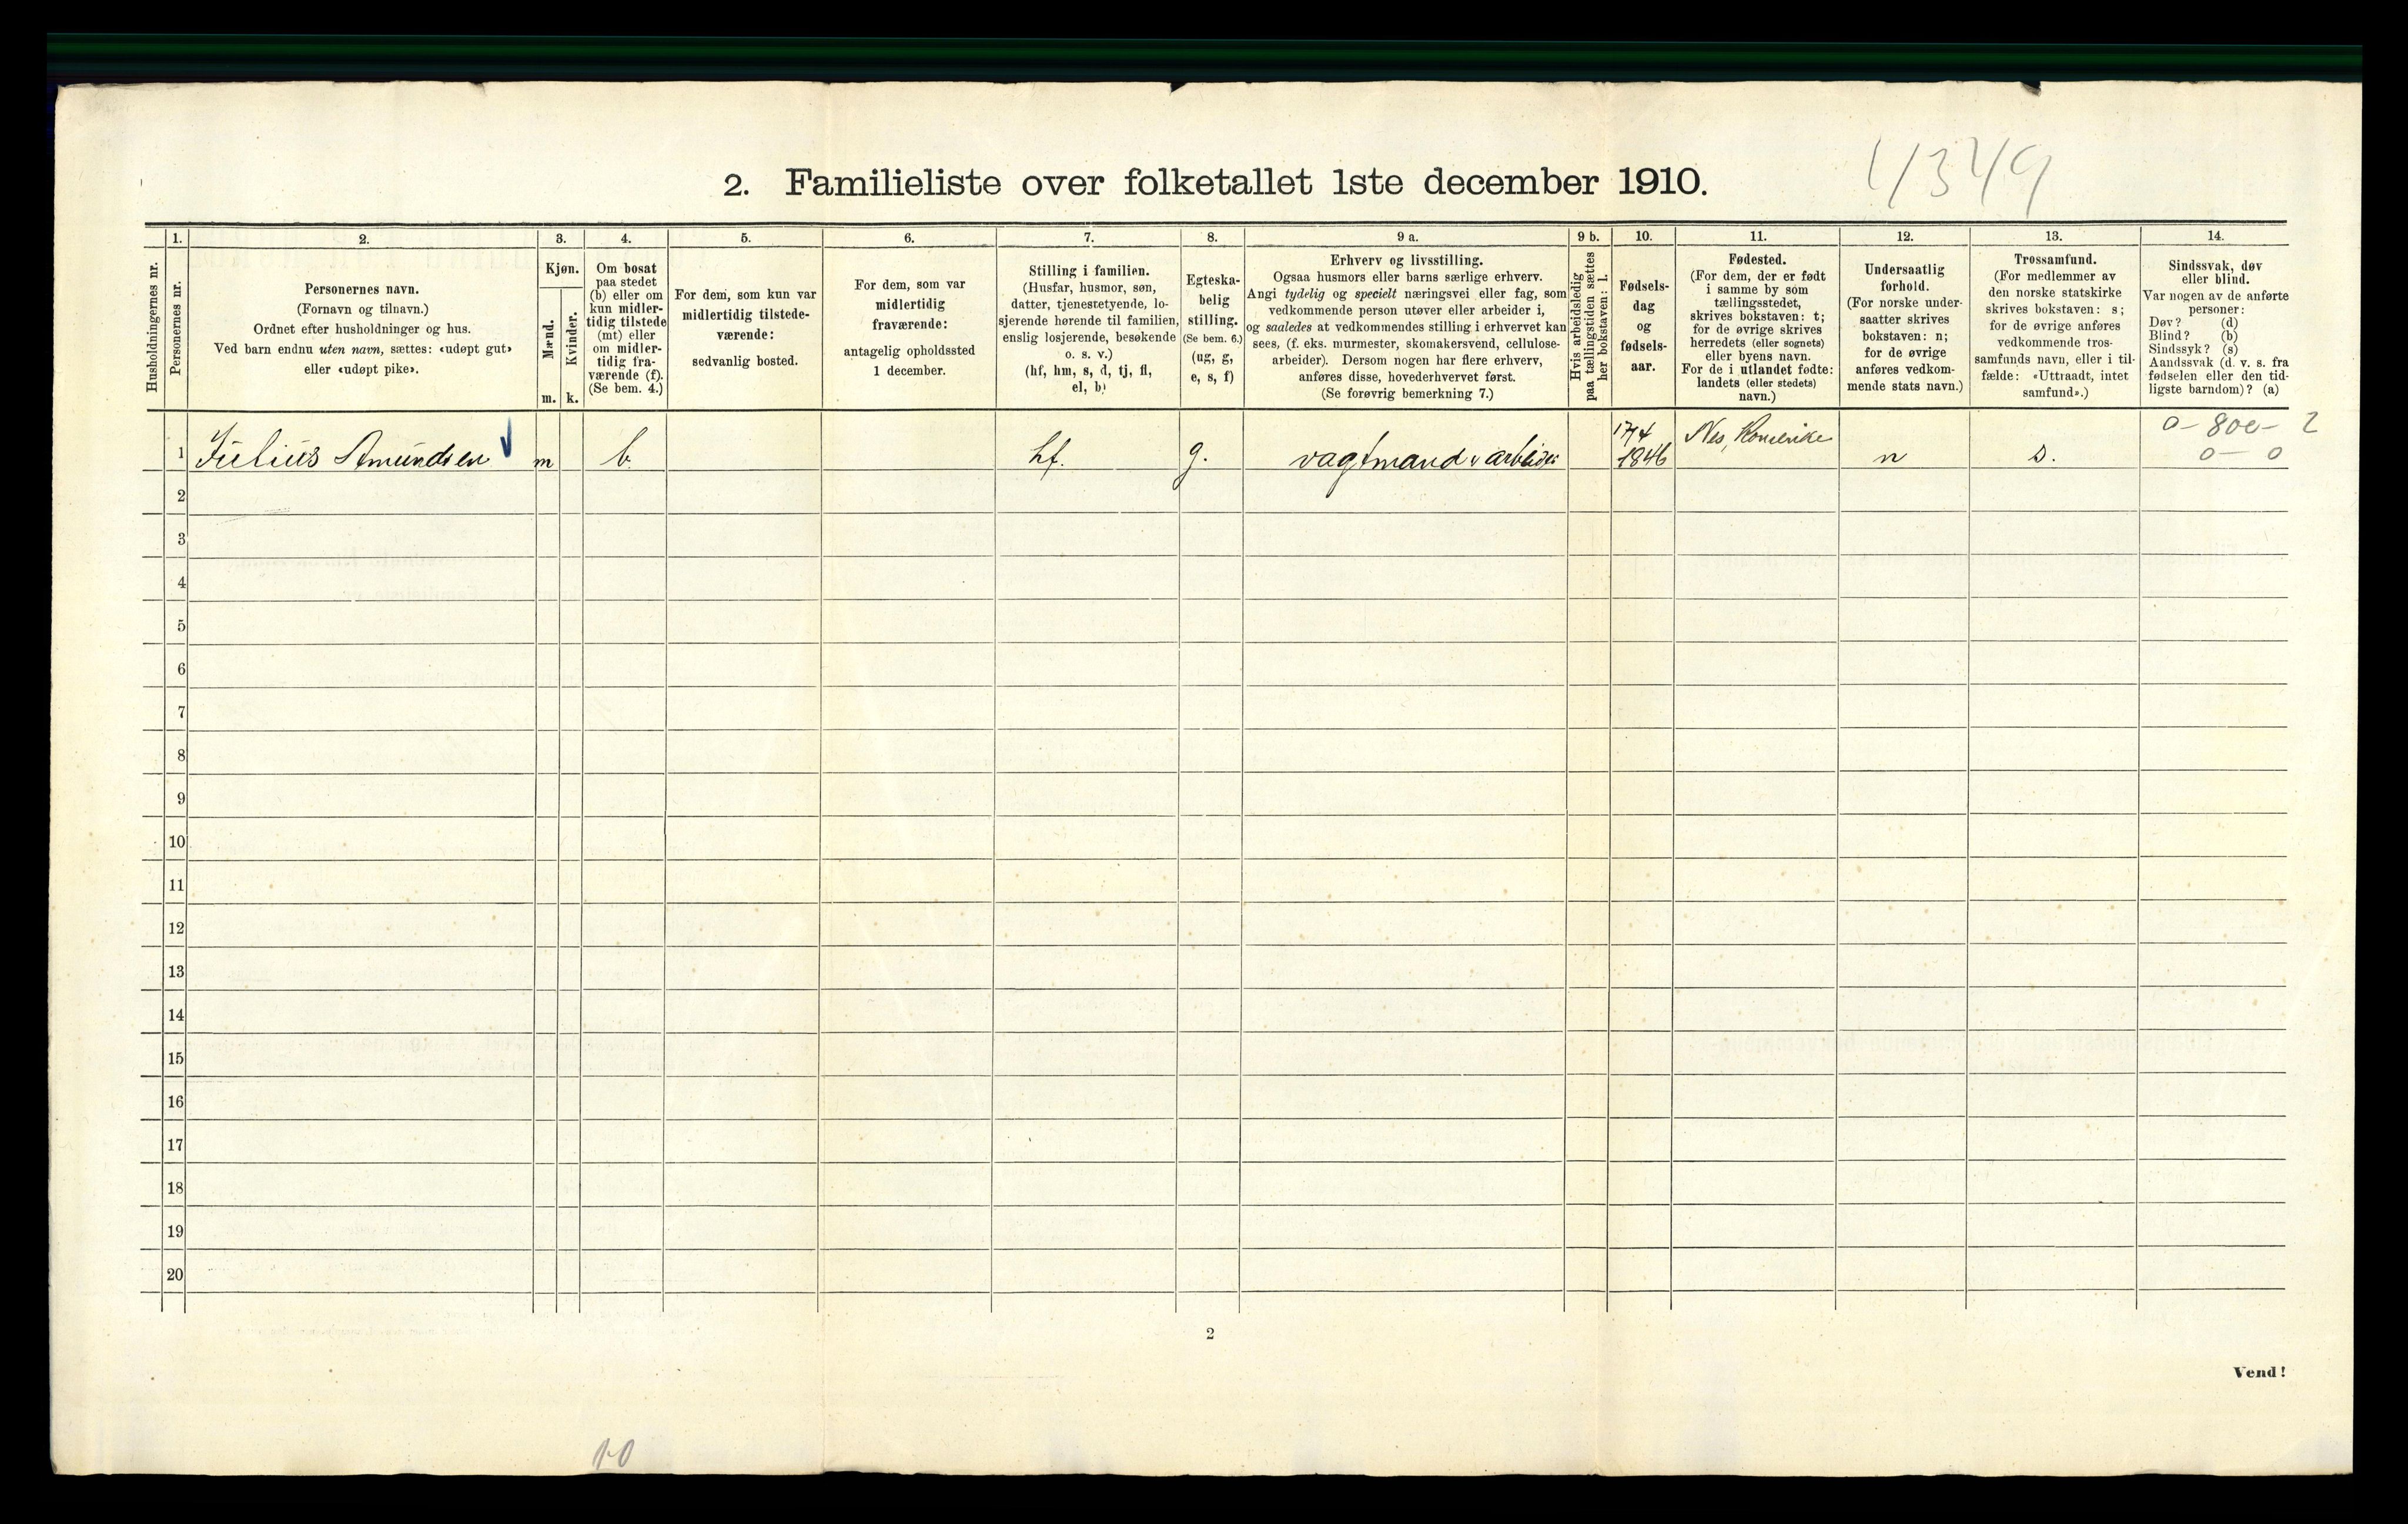 4349
2. Familieliste over folketallet 1ste december 1910.
Husholdningernes nr.
1.
Personernes nr.
2.
Personernes navn.
(Fornavn og tilnavn.)
Ordnet efter husholdninger og hus.
Ved barn endnu uten navn, sættes: «udøpt gut»
eller «udøpt pike».
3.
Kjøn.
Mænd.
m.
Kvinder.
k.
4.
Om bosat
paa stedet
(b) eller om
kun midler-
tidig tilstede
(mt) eller
om midler-
tidig fra-
værende (f).
(Se bem. 4.)
5.
For dem, som kun var
midlertidig tilstede-
værende:
sedvanlig bosted.
6.
For dem, som var
midlertidig
fraværende:
antagelig opholdssted
1 december.
7.
Stilling i familien.
(Husfar, husmor, søn,
datter, tjenestetyende, lo-
sjerende hørende til familien,
enslig losjerende, besøkende
o. s. v.)
(hf, hm, s, d, tj, fl,
el, b)
8.
Egteska-
belig
stilling.
(Se bem. 6.)
(ug, g,
e, s, f)
9 a.
Erhverv og livsstilling.
Ogsaa husmors eller barns særlige erhverv.
Angi tydelig og specielt næringsvei eller fag, som
vedkommende person utøver eller arbeider i,
og saaledes at vedkommendes stilling i erhvervet kan
sees, (f. eks. murmester, skomakersvend, cellulose-
arbeider). Dersom nogen har flere erhverv,
anføres disse, hovederhvervet først.
(Se forøvrig bemerkning 7.)
9 b.
Hvis arbeidsledig
paa tællingstiden sættes
her bokstaven: l.
10.
Fødsels-
dag
og
fødsels-
aar.
11.
Fødested.
(For dem, der er født
i samme by som
tællingsstedet,
skrives bokstaven: t;
for de øvrige skrives
herredets (eller sognets)
eller byens navn.
For de i utlandet fødte:
landets (eller stedets)
navn.)
12.
Undersaatlig
forhold.
(For norske under-
saatter skrives
bokstaven: n;
for de øvrige
anføres vedkom-
mende stats navn.)
13.
Trossamfund.
(For medlemmer av
den norske statskirke
skrives bokstaven: s;
for de øvrige anføres
vedkommende tros-
samfunds navn, eller i til-
fælde: «Uttraadt, intet
samfund».)
14.
Sindssvak, døv
eller blind.
Var nogen av de anførte
personer:
Døv? (d)
Blind? (b)
Sindssyk? (s)
Aandssvak (d. v. s. fra
fødselen eller den tid-
ligste barndom)? (a)
1 Julius Amundsen m b. hf. g. vagtmand v arbeider 17/4 1846 Nes, Romerike n s. 0 - 800 - 2
0 - 0
2
3
4
5
6
7
8
9
10
11
12
13
14
15
16
17
18
19
20
2
Vend!